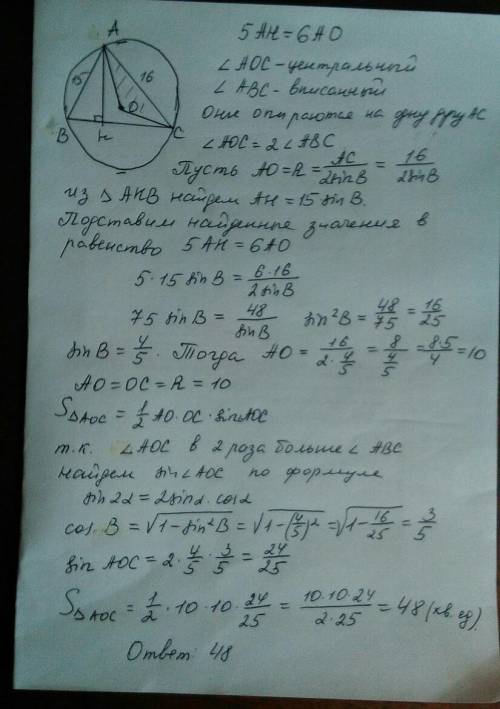 A
15
16
O
B
H
C
5AH = 6AO
∠AOC - центральный
∠ABC - вписанный
Они опираются на одну дугу AC
∠AOC = 2∠ABC
Пусть AO = R = AC/2sinB = 16/2sinB
из △AHB найдем AH = 15 sinB.
Подставим найденные значения в
равенство 5AH = 6AO
5·15 sinB = 6·16/2sinB
75 sinB = 48/sinB sin²B = 48/75 = 16/25
sinB = 4/5. Тогда AO = 16/(2·4/5) = 8/(4/5) = 8·5/4 = 10
AO = OC = R = 10
S△AOC = 1/2 AO·OC·sinAOC
т.к. ∠AOC в 2 раза больше ∠ABC
найдем sin∠AOC по формуле
sin2α = 2sinα·cosα
cos B = √(1-sin²B) = √(1-(4/5)²) = √(1-16/25) = 3/5
sin AOC = 2·4/5·3/5 = 24/25
S△AOC = 1/2·10·10·24/25 = 10·10·24/2·25 = 48 (кв.ед)
Ответ: 48